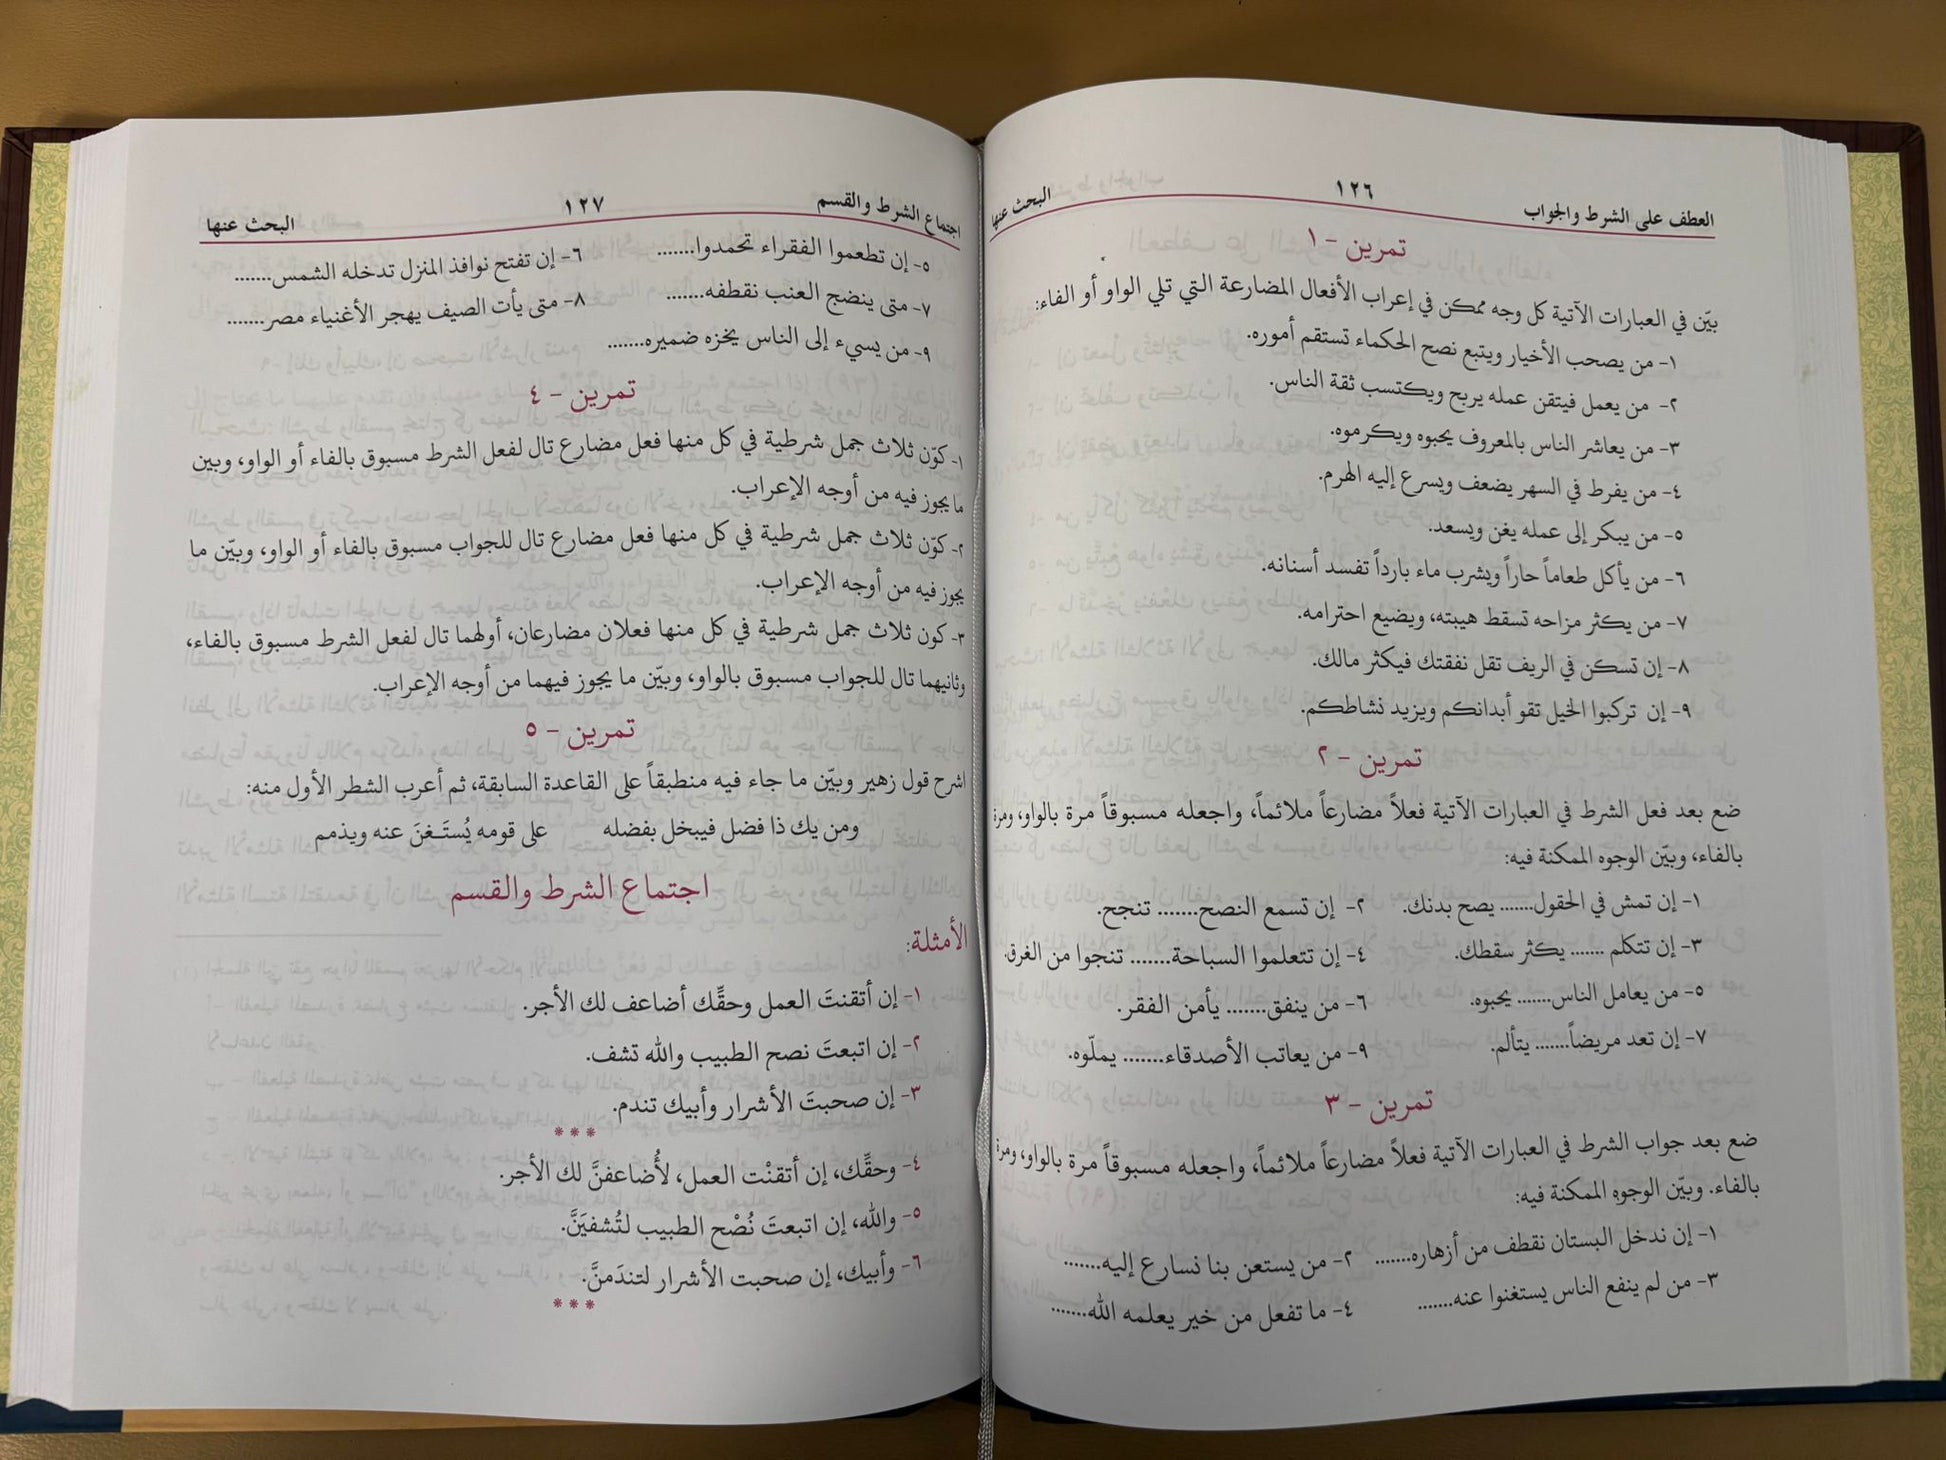 العطف على الشرط والجواب ١٢٦ البحث عنها
تمرين - ١
بيّن في العبارات الآتية كل وجه ممكن في إعراب الأفعال المضارعة التي تلي الواو أو الفاء:
١- من يصحب الأخيار ويتبع نصح الحكماء تستقم أموره.
٢- من يعمل فيتقن عمله يربح ويكتسب ثقة الناس.
٣- من يعاشر الناس بالمعروف يحبوه ويكرموه.
٤- من يفرط في السهر يضعف ويسرع إليه الهرم.
٥- من يبكر إلى عمله يغن ويسعد.
٦- من يأكل طعاماً حاراً ويشرب ماء بارداً تفسد أسنانه.
٧- من يكثر مزاحه تسقط هيبته، ويضيع احترامه.
٨- إن تسكن في الريف تقل نفقتك فيكثر مالك.
٩- إن تركبوا الخيل تقو أبدانكم ويزيد نشاطكم.
تمرين - ٢
ضع بعد فعل الشرط في العبارات الآتية فعلاً مضارعاً ملائماً، واجعله مسبوقاً مرة بالواو، ومرة
بالفاء، وبيّن الوجوه الممكنة فيه:
١- إن تمش في الحقول....... يصح بدنك. ٢- إن تسمع النصح....... تنجح.
٣- إن تتكلم ....... يكثر سقطك. ٤- إن تتعلموا السباحة....... تنجوا من الغرق.
٥- من يعامل الناس....... يحبوه. ٦- من ينفق....... يأمن الفقر.
٧- إن تعد مريضاً....... يتألم. ٩- من يعاتب الأصدقاء....... يملّوه.
تمرين - ٣
ضع بعد جواب الشرط في العبارات الآتية فعلاً مضارعاً ملائماً، واجعله مسبوقاً مرة بالواو، ومرة
بالفاء. وبيّن الوجوه الممكنة فيه:
١- إن ندخل البستان نقطف من أزهاره....... ٢- من يستعن بنا نسارع إليه.......
٣- من لم ينفع الناس يستغنوا عنه....... ٤- ما تفعل من خير يعلمه الله.......
اجتماع الشرط والقسم ١٢٧ البحث عنها
٥- إن تطعموا الفقراء تحمدوا....... ٦- إن تفتح نوافذ المنزل تدخله الشمس.......
٧- متى ينضج العنب نقطفه....... ٨- متى يأت الصيف يهجر الأغنياء مصر.......
٩- من يسيء إلى الناس يخزه ضميره.......
تمرين - ٤
١- كوّن ثلاث جمل شرطية في كل منها فعل مضارع تال لفعل الشرط مسبوق بالفاء أو الواو، وبين
ما يجوز فيه من أوجه الإعراب.
٢- كوّن ثلاث جمل شرطية في كل منها فعل مضارع تال للجواب مسبوق بالفاء أو الواو، وبيّن ما
يجوز فيه من أوجه الإعراب.
٣- كون ثلاث جمل شرطية في كل منها فعلان مضارعان، أولهما تال لفعل الشرط مسبوق بالفاء،
وثانيهما تال للجواب مسبوق بالواو، وبيّن ما يجوز فيهما من أوجه الإعراب.
تمرين - ٥
اشرح قول زهير وبيّن ما جاء فيه منطبقاً على القاعدة السابقة، ثم أعرب الشطر الأول منه:
ومن يك ذا فضل فيبخل بفضله على قومه يُستَغنَ عنه ويذمم
اجتماع الشرط والقسم
الأمثلة:
١- إن أتقنتَ العمل وحقِّك أضاعف لك الأجر.
٢- إن اتبعتَ نصح الطبيب والله تشف.
٣- إن صحبتَ الأشرار وأبيك تندم.
***
٤- وحقِّك، إن أتقنْت العمل، لأُضاعفنَّ لك الأجر.
٥- والله، إن اتبعتَ نُصْح الطبيب لتُشفيَنَّ.
٦- وأبيك، إن صحبت الأشرار لتندَمنَّ.
***